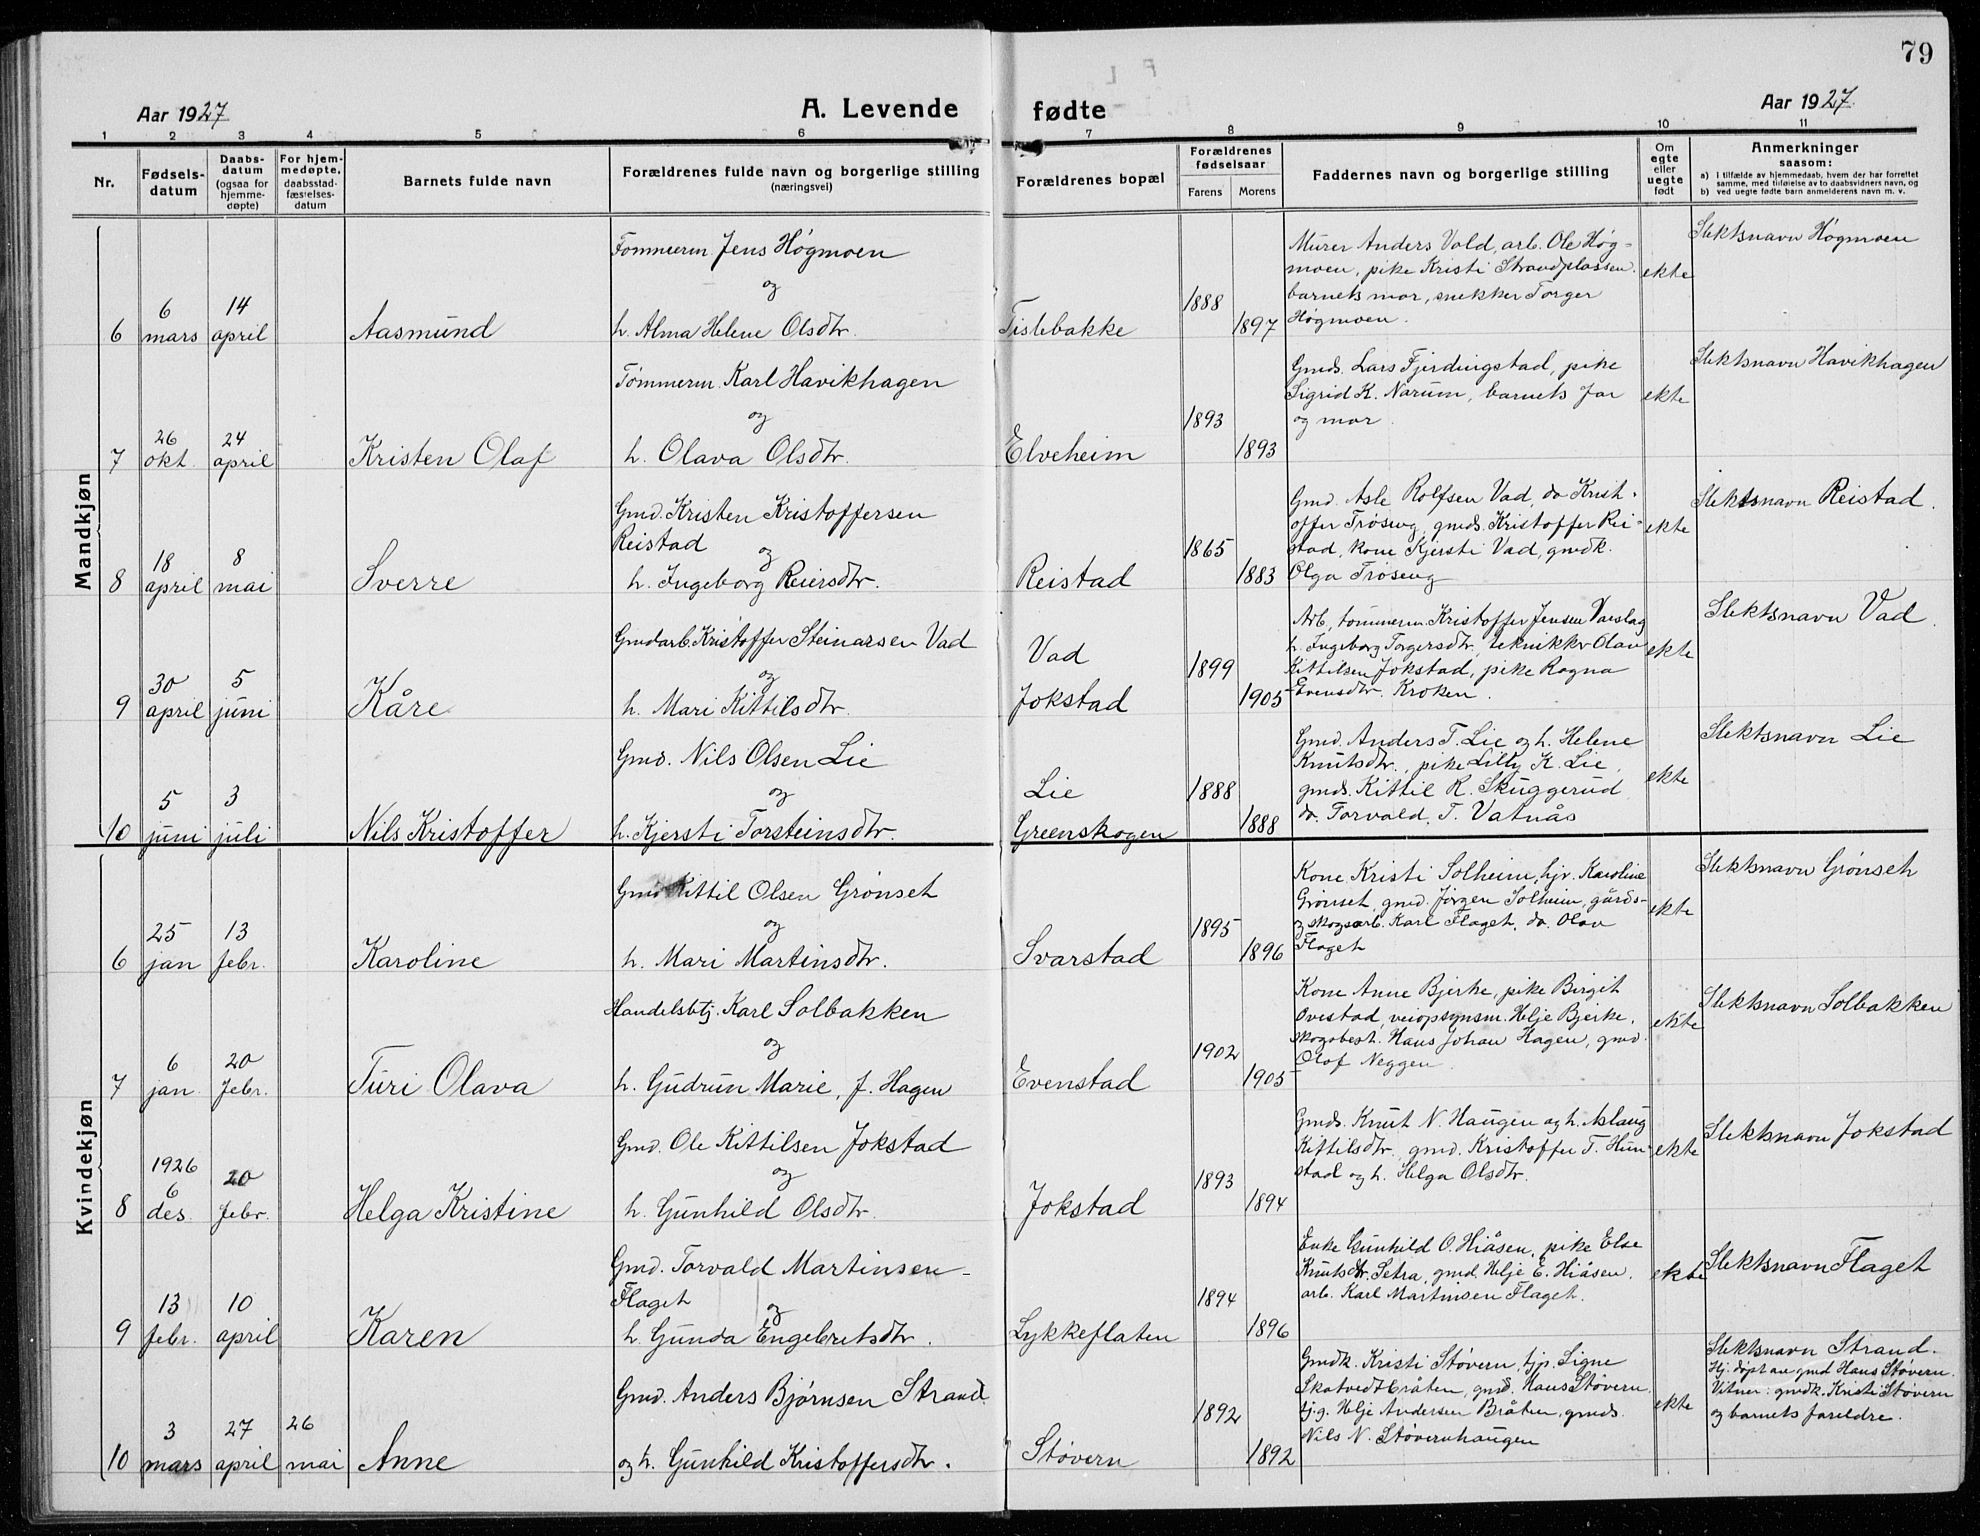 79
Aar 1927
A. Levende fødte
Aar 1927.
1 2 3 4 5 6 7 8 9 10 11
Nr.
Fødsels-
datum
Daabs-
datum
(ogsaa for
hjemme-
døpte)
For hjem-
medøpte,
daabsstad-
fæstelses-
datum
Barnets fulde navn
Forældrenes fulde navn og borgerlige stilling
(næringsvei)
Forældrenes bopæl
Forældrenes
fødselsaar
Farens Morens
Faddernes navn og borgerlige stilling
Om
egte
eller
uegte
født
Anmerkninger
saasom:
a) i tilfælde av hjemmedaab, hvem der har forrettet
samme, med tilføielse av to daabsvidners navn, og
b) ved uegte fødte barn anmelderens navn m. v.
Mandkjøn
6
6
mars
14
april
Aasmund
Tømmerm. Jens Høgmoen
og
h. Alma Helene Olsdtr.
Tislebakke
1888
1897
Murer Anders Vold, arb. Ole Høg-
moen, pike Kristi Strandplassen.
barnets mor, snekker Torger
Høgmoen.
ekte
Slektsnavn Høgmoen
7
26
okt.
24
april
Kristen Olaf
Tømmerm. Karl Havikhagen
og
h. Olava Olsdtr.
Elveheim
1893
1893
Gmds. Lars Fjerdingstad, pike
Sigrid K. Narum, barnets far
og mor.
ekte
Slektsnavn Havikhagen
8
18
april
8
mai
Sverre
Gmd. Kristen Kristoffersen
Reistad
og
h. Ingeborg Reiersdtr.
Reistad
1865
1883
Gmd. Asle Rolfsen Vad, do Krist-
offer Trøseng, gmds. Kristoffer Rei-
stad, kone Kjersti Vad, gmdk.
Olga Trøseng
ekte
Slektsnavn Reistad.
9
30
april
5
juni
Kåre
Gmdarb. Kristoffer Steinarsen Vad
og
h. Mari Kittilsdtr.
Vad
Jokstad
1899
1905
Arb, tømmerm. Kristoffer Jensen Varslag
h. Ingeborg Torgersdtr, tekniker Olav
Kittilsen Jokstad, pike Ragna
Evensdtr. Kroken.
ekte
Slektsnavn Vad.
10
5
juni
3
juli
Nils Kristoffer
Gmd. Nils Olsen Lie
og
h. Kjersti Torsteinsdtr.
Lie
Greenskogen
1888
1888
Gmd. Anders T. Lie og h. Helene
Knutsdtr., pike Lilly K. Lie,
gmds. Kittil R. Skuggerud,
do. Torvald. T. Vatnås
ekte
Slektsnavn Lie
Kvindekjøn
6
25
jan
13
febr.
Karoline
Gmd Kittil Olsen Grønset
og
h. Mari Martinsdtr.
Svarstad
1895
1896
Kone Kristi Solheim, hjv. Karoline
Grønset, gmd. Jørgen Solheim, gårds-
og skogsarb. Karl Flaget, do. Olav
Flaget
ekte
Slektsnavn Grønset
7
6
jan.
20
febr.
Turi Olava
Handelsbtj. Karl Solbakken
og
h. Gudrun Marie, f. Hagen
Evenstad
1902
1905
Kone Anne Bjerke, pike Birgit
Ovestad, veiopsynsm. Helje Bjerke.
skogsbest. Hans Johan Hagen, gmd.
Olaf Neggen.
ekte
Slektsnavn Solbakken
8
1926
6
des.
20
febr.
Helga Kristine
Gmd. Ole Kittilsen Jokstad
og
h. Gunhild Olsdtr.
Jokstad
1893
1894
Gmds. Knut N. Haugen og h. Aslaug
Kittilsdtr., gmd. Kristoffer T. Hun-
stad og h. Helga Olsdtr.
ekte
Slektsnavn Jokstad
9
13
febr.
10
april
Karen
Gmd. Torvald Martinsen
Flaget
og
h. Gunda Engebretsdtr.
Lykkeflaten
1894
1896
Enke Gunhild O. Hiåsen, pike Else
Knutsdtr. Setra, gmd. Helje E. Hiåsen.
arb. Karl Martinsen Flaget.
ekte
Slektsnavn Flaget
10
3
mars
27
april
26
mai
Anne
Gmd. Anders Bjørnsen Strand
og h. Gunhild Kristoffersdtr.
Støvern
1892
1892
Gmdk. Kristi Støvern, tjp. Signe
Skatvedtbråten, gmd. Hans Støvern.
tj.g. Helje Andersen Bråten, gmds.
Nils N. Støvernhaugen
ekte
Slektsnavn Strand.
Hj. døpt av gmd Hans Støvern.
Vitner: gmdk. Kristi Støvern
og barnets foreldre.